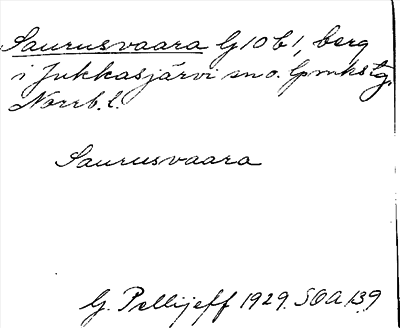 Saurusvaara G10b1, berg
i Jukkasjärvi sn o. lpmkstg,
Norrb. l.
Saurusvaara
G. Pellijeff 1929. SOA 139